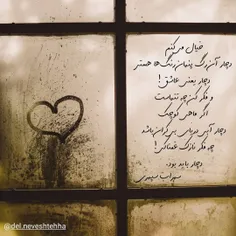 خیال می‌کنم
دچار آن رگ پنهان رنگ‌ها هستی
دچار یعنی عاشق!
و فکر کن چه تنهاست
اگر ماهی کوچک
دچار آبی دریای بی‌کران باشد
چه فکر نازک غمناکی!
دچار باید بود.
سهراب سپهری
@del.neveshtehha